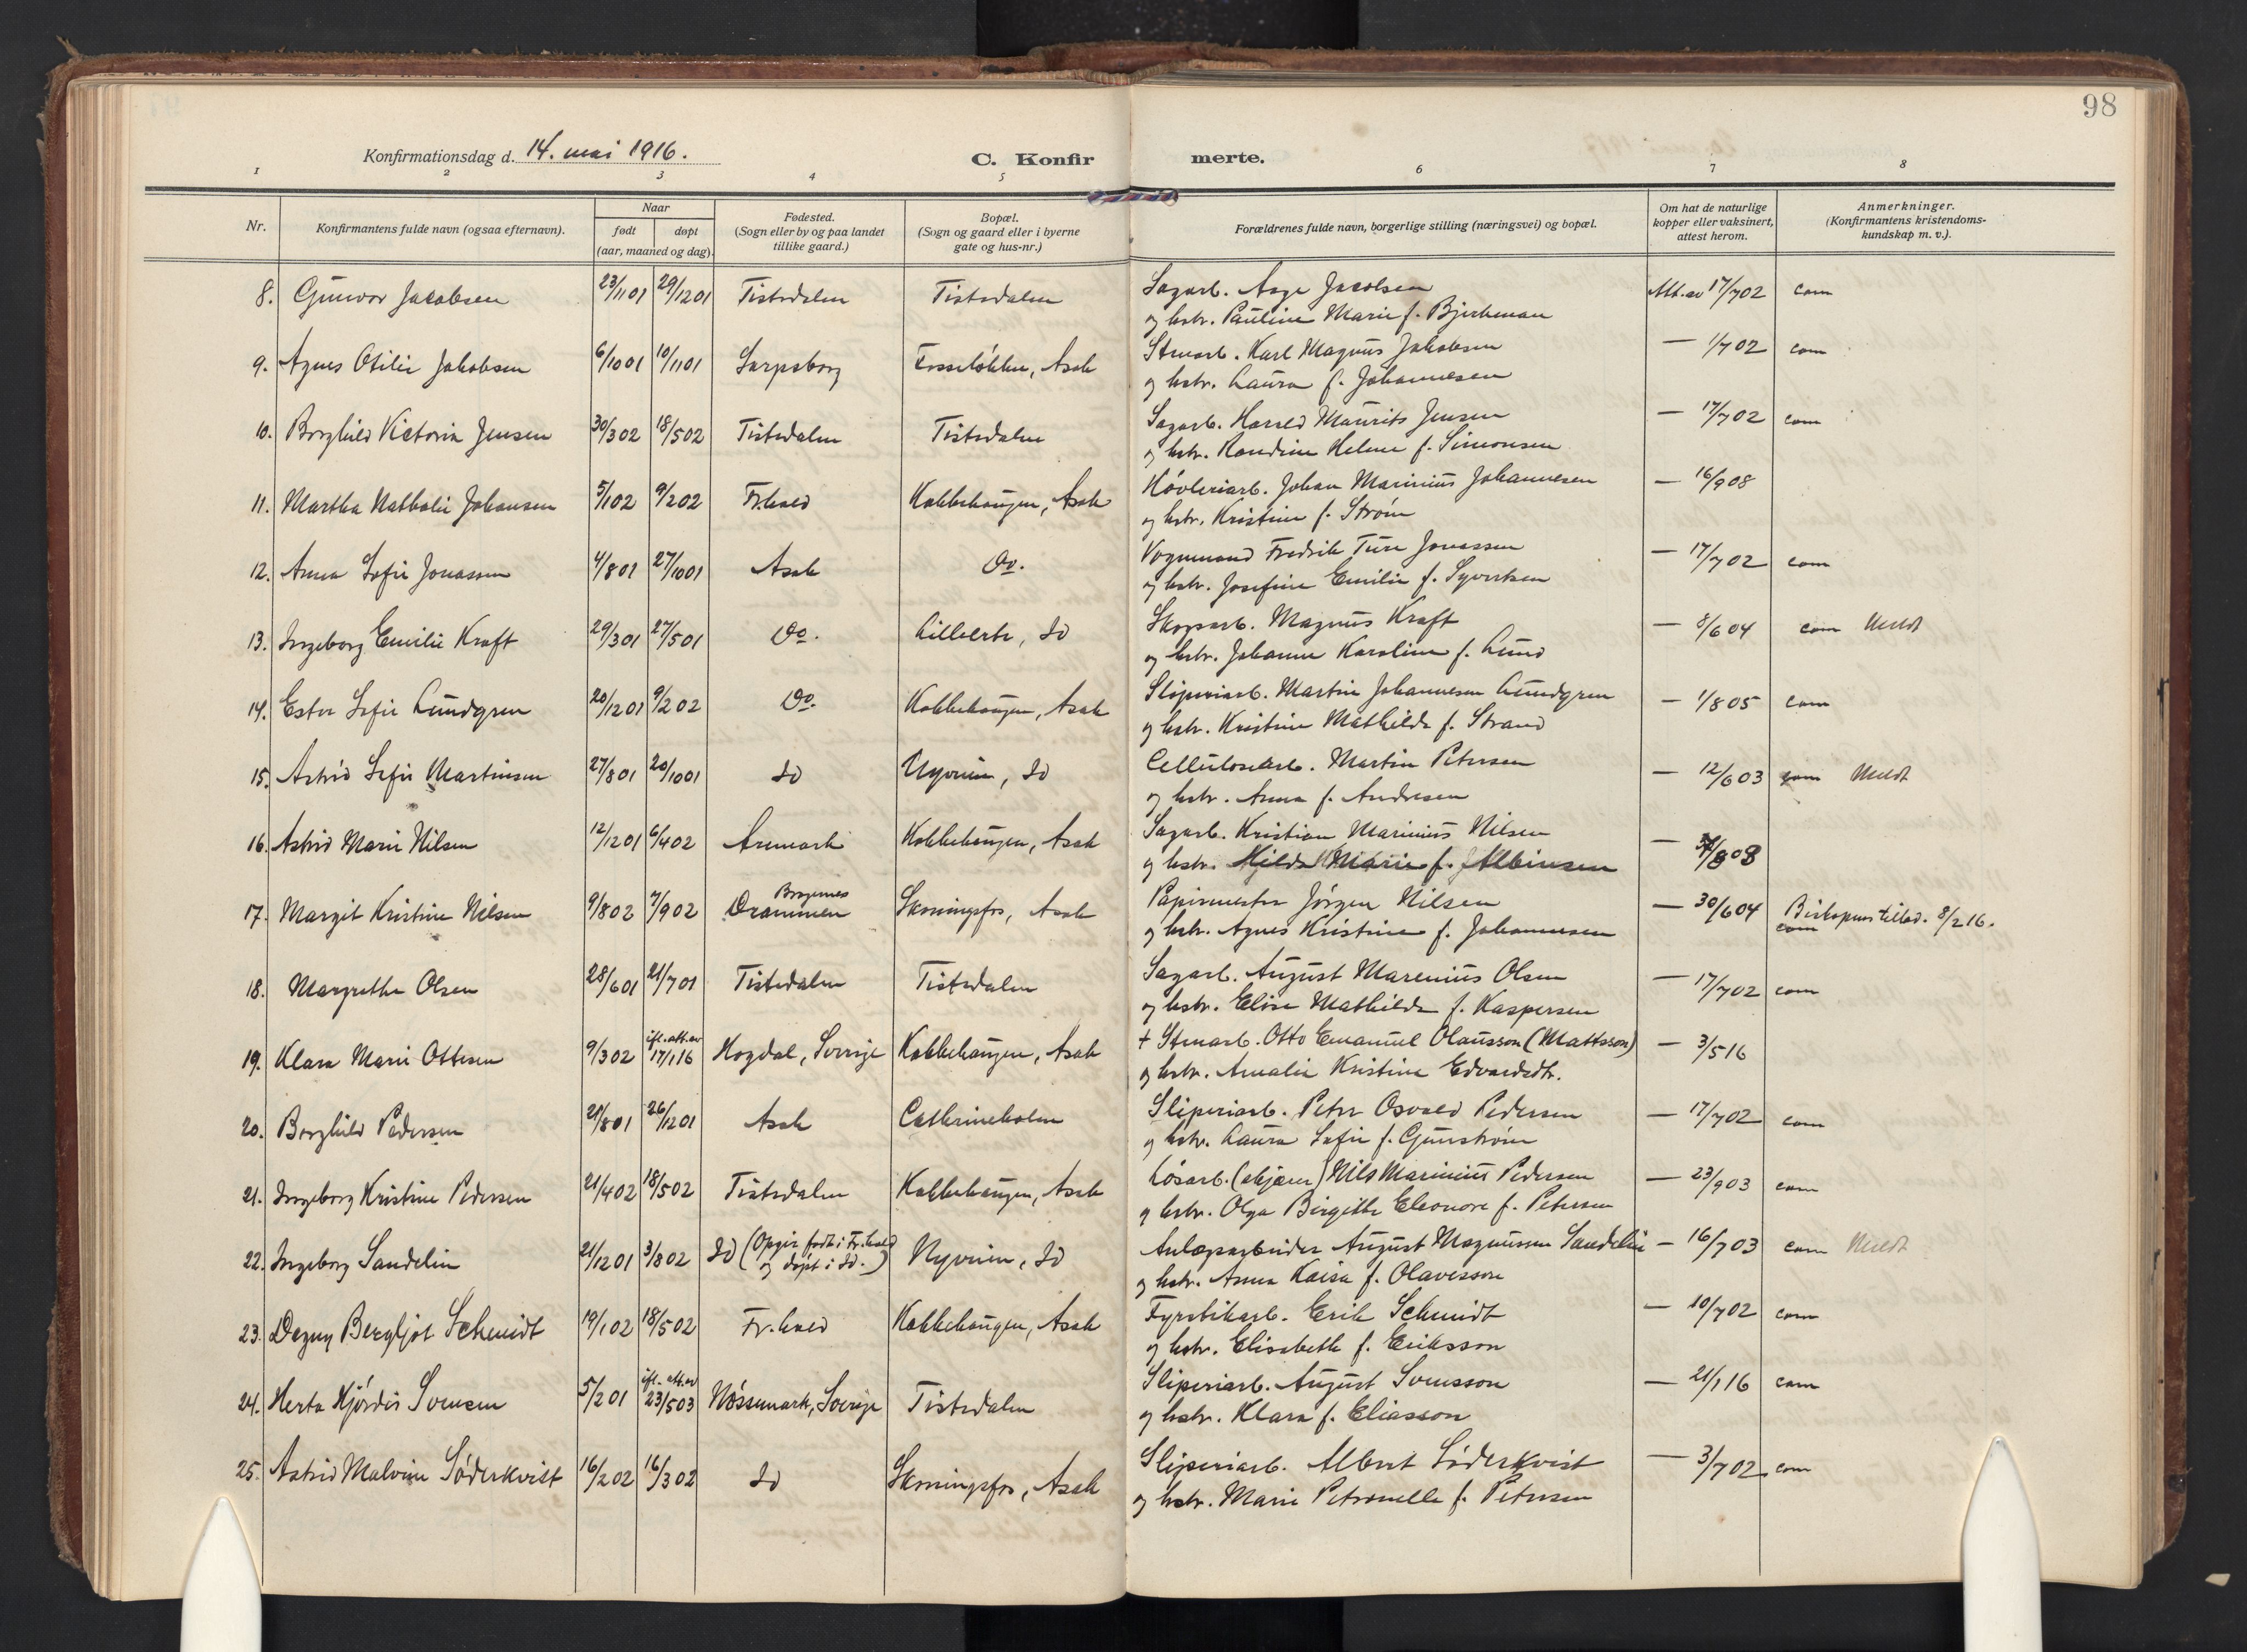 98
Konfirmationsdag d. 14. mai 1916.
C. Konfirmerte.
1 2 3 4 5 6 7 8
Nr.
Konfirmantens fulde navn (ogsaa efternavn).
Naar
født døpt
(aar, maaned og dag).
Fødested.
(Sogn eller by og paa landet
tillike gaard.)
Bopæl.
(Sogn og gaard eller i byerne
gate og hus-nr.)
Forældrenes fulde navn, borgerlige stilling (næringsvei) og bopæl.
Om hat de naturlige
kopper eller vaksinert,
attest herom.
Anmerkninger.
(Konfirmantens kristendoms-
kundskap m. v.).
8. Gunvor Jacobsen 23/11 01 29/12 01 Tistedalen Tistedalen Sagarb. Aage Jacobsen Att. av 17/7 02 com
og hstr. Pauline Marie f. Bjerkman
9. Agnes Otilie Jakobsen 6/10 01 10/11 01 Sarpsborg Fosseløkken, Asak Stenarb. Karl Magnus Jakobsen — 1/7 02 com
og hstr. Laura f. Johannesen
10. Borghild Victoria Jensen 30/3 02 18/5 02 Tistedalen Tistedalen Sagarb. Harald Maurits Jensen — 17/7 02 com
og hstr. Randine Helene f. Simonsen
11. Martha Nathalie Johansen 5/1 02 9/2 02 Fr.hald Kobbehaugen, Asak Høvleriarb. Johan Marinius Johannesen — 16/9 08
og hstr. Kristine f. Strøm
12. Anna Sofie Jonassen 4/8 01 27/10 01 Asak Do. Vognmand Fredrik Ture Jonassen — 17/7 02 com
og hstr. Josefine Emilie f. Syvertsen
13. Ingeborg Emilie Kraft 29/3 01 27/5 01 Do. Lilleerte, Id Skogsarb. Magnus Kraft — 8/6 04 com Meldt
og hstr. Johanne Karoline f. Lund
14. Ester Sofie Lundgren 20/12 01 9/2 02 Do. Kobbehaugen, Asak Sliperiarb. Martin Johannesen Lundgren — 1/8 05 com
og hstr. Kristine Mathilde f. Strand
15. Astrid Sofie Martinsen 27/8 01 20/10 01 Id Nyveien, Id Cellulosearb. Martin Petersen — 12/6 03 com Meldt
og hstr. Anna f. Andresen
16. Astrid Marie Nilsen 12/12 01 6/4 02 Aremark Kobbehaugen, Asak Sagarb. Kristian Marinius Nilsen — /8 08
og hstr. Hilda Marie f. Albinsen
17. Margit Kristine Nilsen 9/8 02 7/9 02 Bragernes Drammen Skonningsfos, Asak Papirmester Jørgen Nilsen — 30/6 04 Biskopens tillad. 8/2 16.
com
og hstr. Agnes Kristine f. Johannesen
18. Margrethe Olsen 28/6 01 21/7 01 Tistedalen Tistedalen Sagarb. August Marenius Olsen — 17/7 02 com
og hstr. Elise Mathilde f. Kaspersen
19. Klara Marie Ottesen 9/3 02 ifl. att. av 17/1 16 Hogdal, Sverige Kobbehaugen, Asak + Stenarb. Otto Emanuel Olausson (Mattsson) — 3/5 16
og hstr. Amalie Kristine Edvardsdtr.
20. Borghild Pedersen 21/8 01 26/12 01 Asak Cathrineholm Sliperiarb. Peter Osvald Pedersen — 17/7 02 com
og hstr. Laura Sofie f. Gjunstrøm
21. Ingeborg Kristine Pedersen 21/4 02 18/5 02 Tistedalen Kobbehaugen, Asak Løsarb. Nils Marinius Pedersen — 23/9 03 com
og hstr. Olga Birgitte Eleonore f. Petersen
22. Ingeborg Sandelin 21/12 01 3/8 02 Id (Opgir født i Fr.hald
og døpt i Id.) Nyveien, Id Anlægsarbeider August Magnussen Sandelin — 16/7 03 com Meldt
og hstr. Anna Kaisa f. Olavesson
23. Dagny Bergljot Schmidt 19/1 02 18/5 02 Fr.hald Kobbehaugen, Asak Fyrstikarb. Erik Schmidt — 10/7 02 com
og hstr. Elisabeth f. Eriksson
24. Herta Hjørdis Svensen 5/2 01 ifl. att. av 23/5 03 Nøssemark, Sverige Tistedalen Sliperiarb. August Svensson — 21/1 16 com
og hstr. Klara f. Eliasson
25. Astrid Malvine Söderkvist 16/2 02 16/3 02 Id Skonningsfos, Asak Sliperiarb. Albert Söderkvist — 3/7 02 com
og hstr. Marie Petronelle f. Petersen